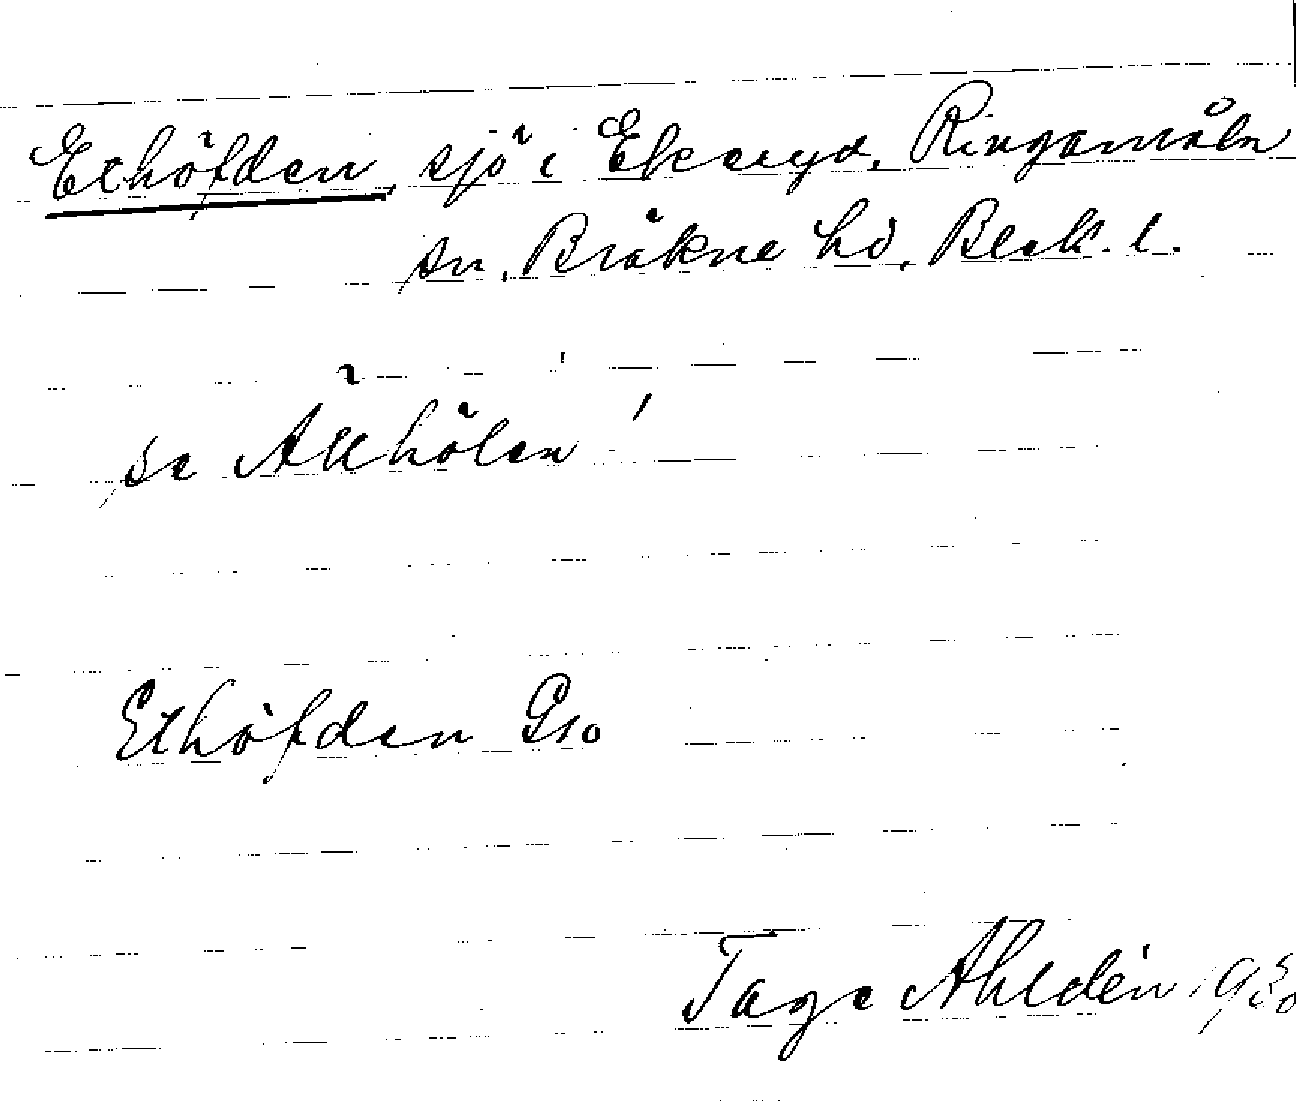 Ethöfden, sjö i Ekeryd, Ringamåla
sn, Bräkne hd, Blek. l.
se Äkhölen!
Ethöfden Gso
Tage Ahldén 1930